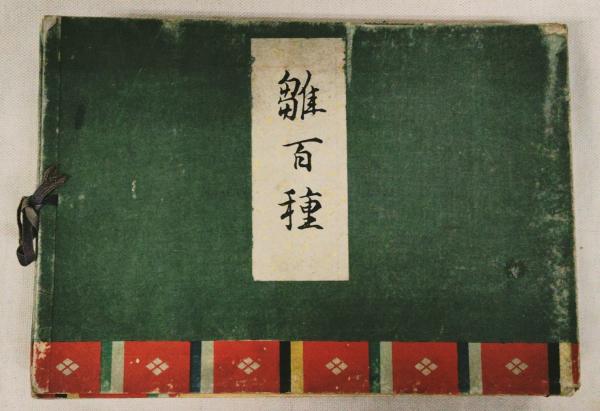 雛百種